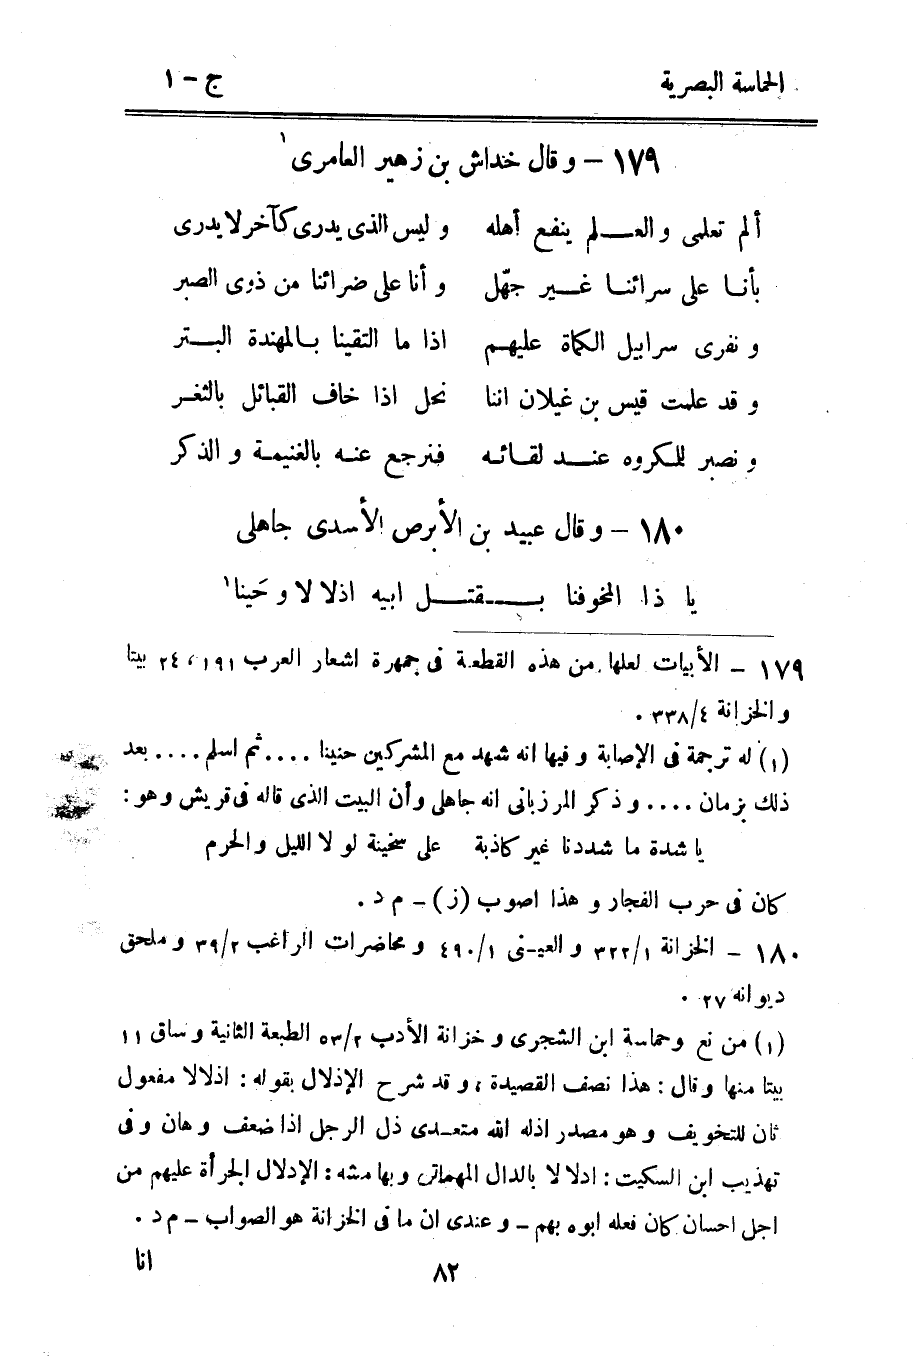 الحماسة البصرية ج – ١
١٧٩ – و قال خداش بن زهير العامرى١
ألم تعلمى والعــلم ينفع أهله و ليس الذى يدرى كآخر لا يدرى
بأنــا على سرائنــا غــير جهّل و أنا على ضرائنا من ذوى الصبر
و نفرى سرابيل الكماة عليهم اذا ما التقينا بــالمهندة البــتر
و قد علمت قيس بن غيلان اننا نحل اذا خاف القبائل بالثغـر
و نصبر للمكروه عنــد لقـائـه فنرجع عنـه بالغنيمـة و الذكر
١٨٠ – و قال عبيد بن الأبرص الأسدى جاهلى
يا ذا المخوفنا بــقتــل ابيه اذلا لا و حَينا١
١٧٩ – الأبيات لعلها من هذه القطعة فى جمهرة اشعار العرب ١٩١، ٢٤ بيتا
والخزانة ٣٣٨/٤ ٠
(١) له ترجمة فى الإصابة و فيها انه شهد مع المشركين حنينا .... ثم اسلم .... بعد
ذلك بزمان .... و ذكر المرزبانى انه جاهلى وأن البيت الذى قاله فى قريش وهو :
يا شدة ما شددنا غير كاذبة على سخينة لو لا الليل والحرم
كان فى حرب الفجار و هذا اصوب (ز) – م د ٠
١٨٠ – الخزانة ٣٢٢/١ والعيـنى ٤٩٠/١ و محاضرات الراغب ٣٩/٢ و ملحق
ديوانه ٢٧ ٠
(١) من نع وحماسة ابن الشجرى و خزانة الأدب ٥٣/٢ الطبعة الثانية و ساق ١١
بيتا منها وقال : هذا نصف القصيدة ، و قد شرح الإذلال بقوله : اذلالا مفعول
ثان للتخويف و هو مصدر اذله الله متعـدى ذل الرجل اذا ضعف و هان و فى
تهذيب ابن السكيت : ادلا لا بالدال المهملة وبهامشه : الإدلال الجرأة عليهم من
اجل احسان كان فعله ابوه بهم – و عندى ان ما فى الخزانة هو الصواب – م د ٠
انا
٨٢